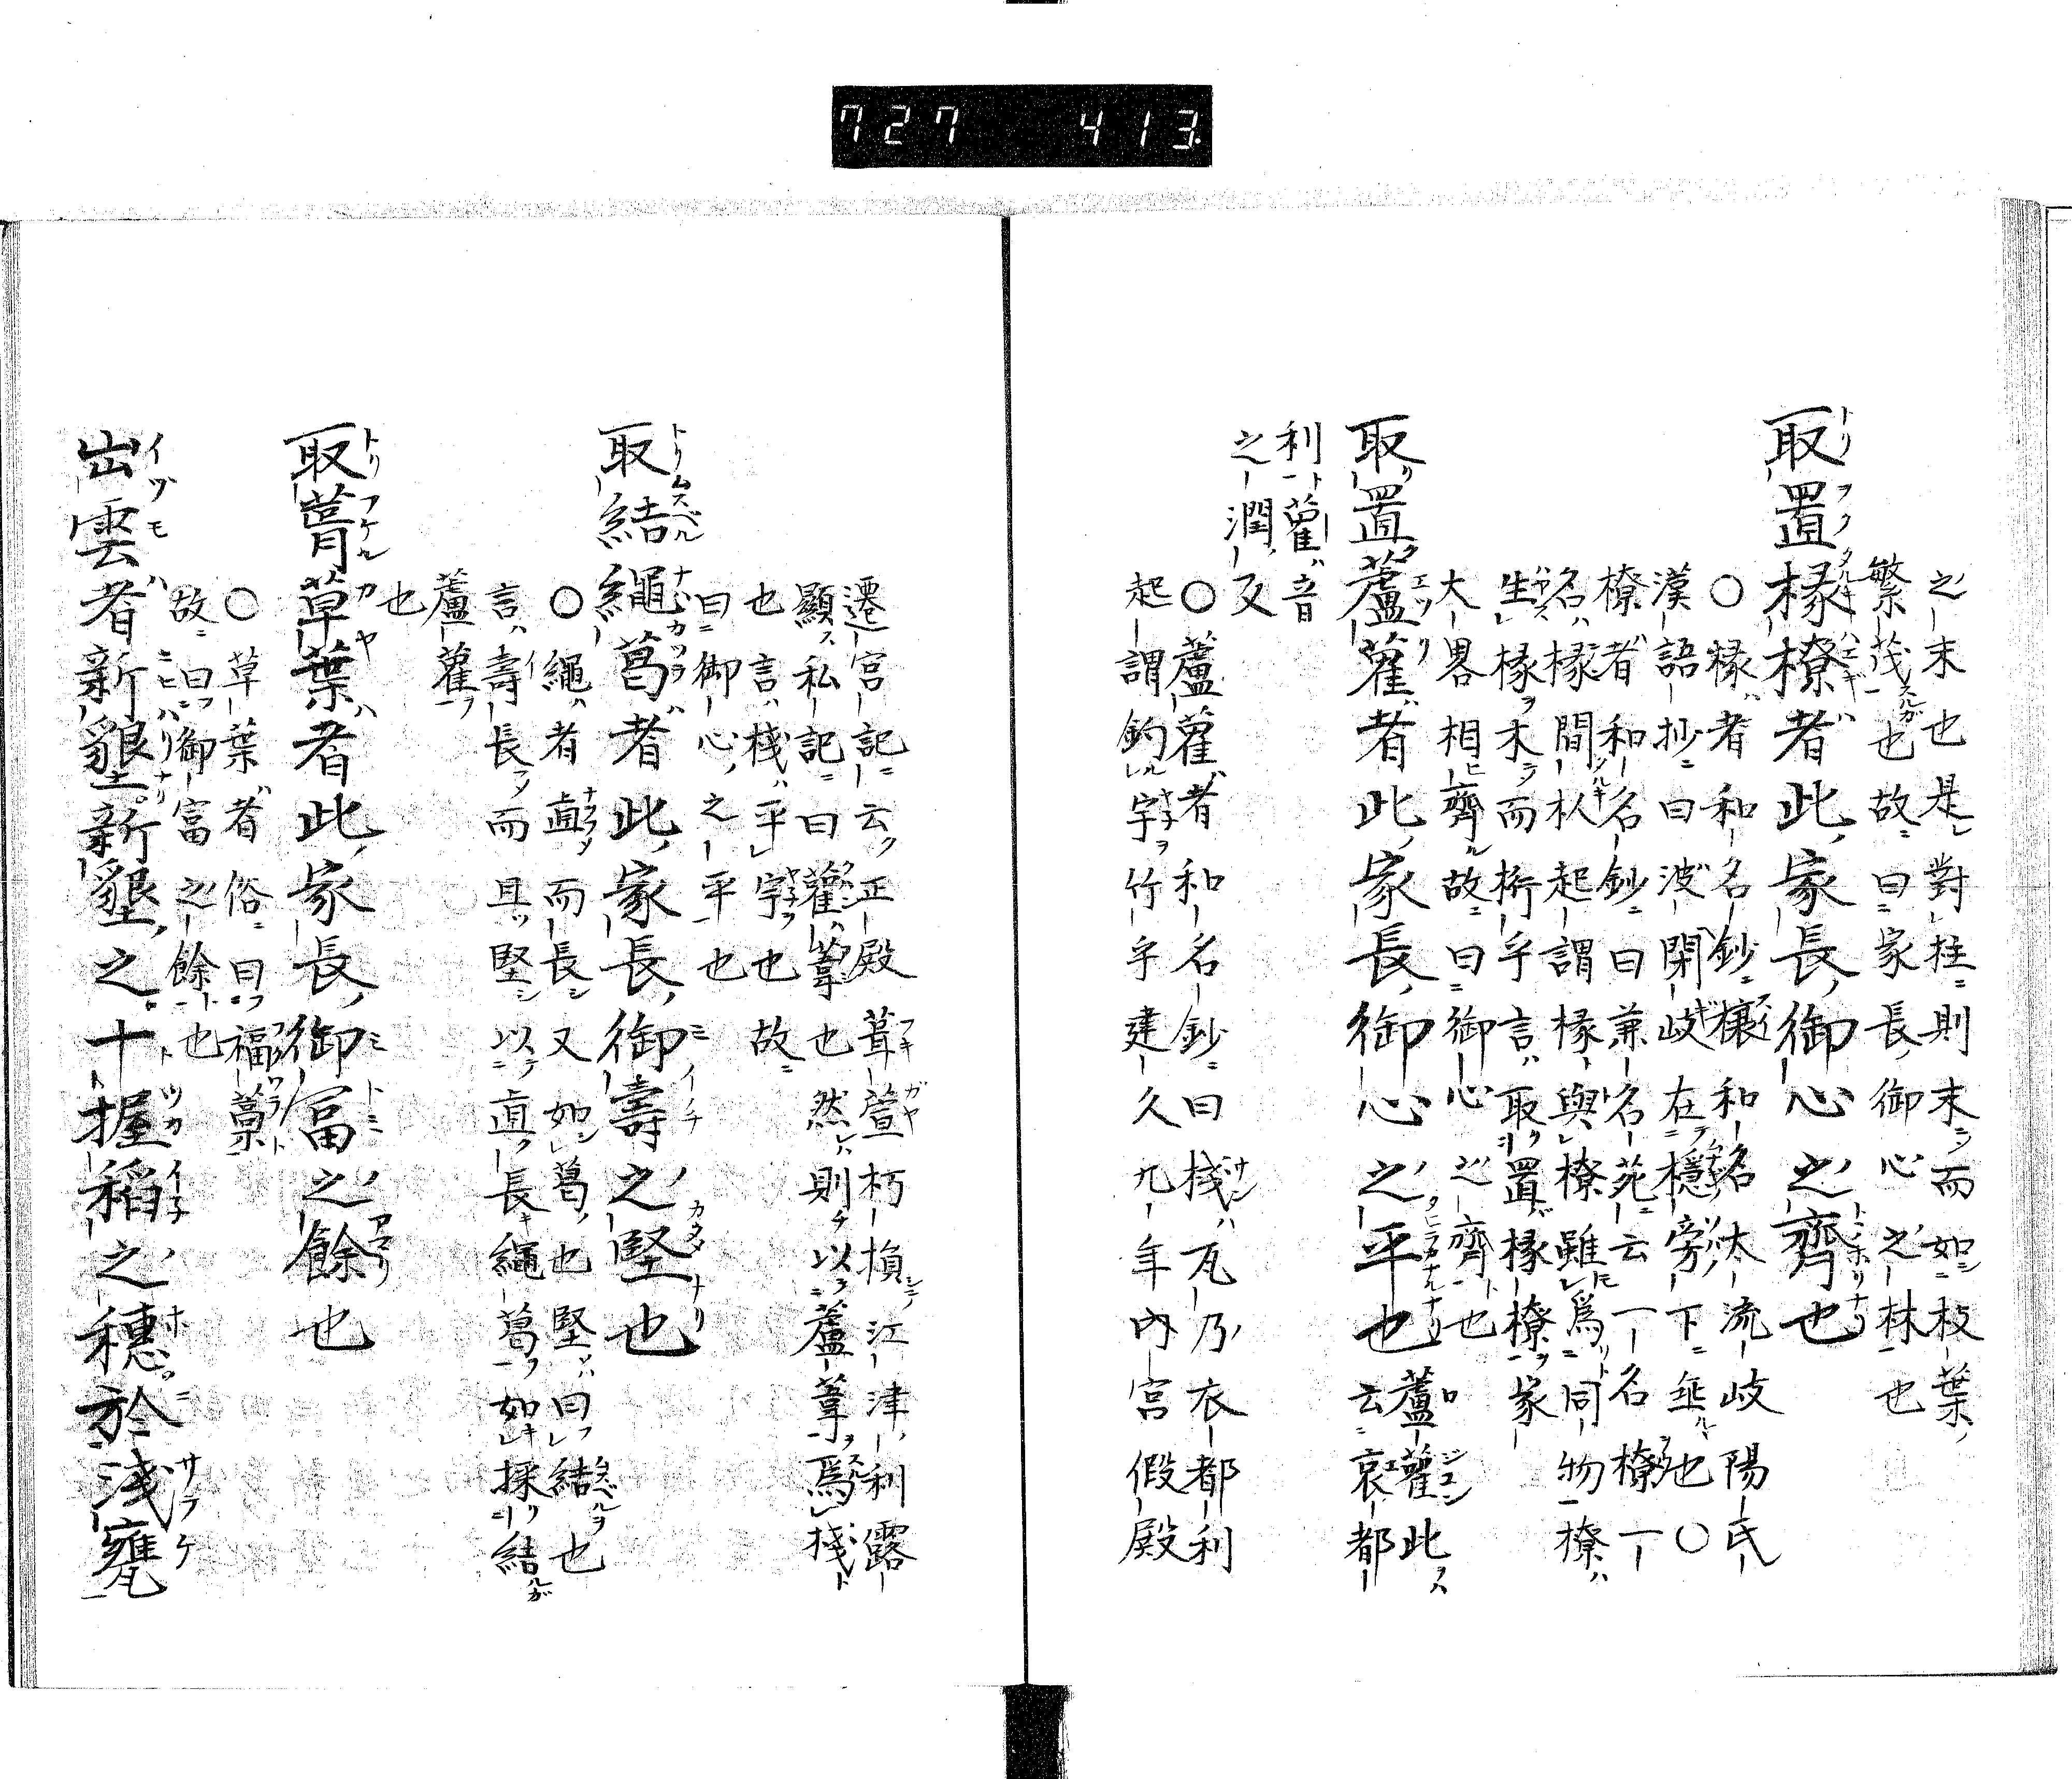 727 413
之末也是對柱則末而如枝葉
繁茂也故曰家長御心之林也
取置椽橑者此家長御心之齊也
○椽者和名鈔榱和名太流岐陽氏
漢語抄曰波閇岐在檼旁下垂也○
橑者和名鈔曰兼名苑云一名橑一
名椽間杁起謂椽與橑雖爲同物橑
生椽木而桁乎言取置椽橑家
大畧相齊故曰御心之齊也
取置蘆雚者此家長御心之平也蘆雚此云哀都
利雚音
之潤反
○蘆雚者和名鈔曰棧瓦乃衣都利
起謂釣字竹乎建久九年內宮假殿
遷宮記云正殿葺萱朽損江津利露
顯私記曰雚葦也然則以蘆葦爲棧
也言棧平字也故
曰御心之平也
取結繩葛者此家長御壽之堅也
○繩者直而長又如葛也堅曰結也
言壽長而且堅以直長繩葛如採結
蘆雚
也
取葺草葉者此家長御富之餘也
○草葉者俗曰福藁
故曰御富之餘也
出雲者新墾新墾之十握稻之穗於淺甕